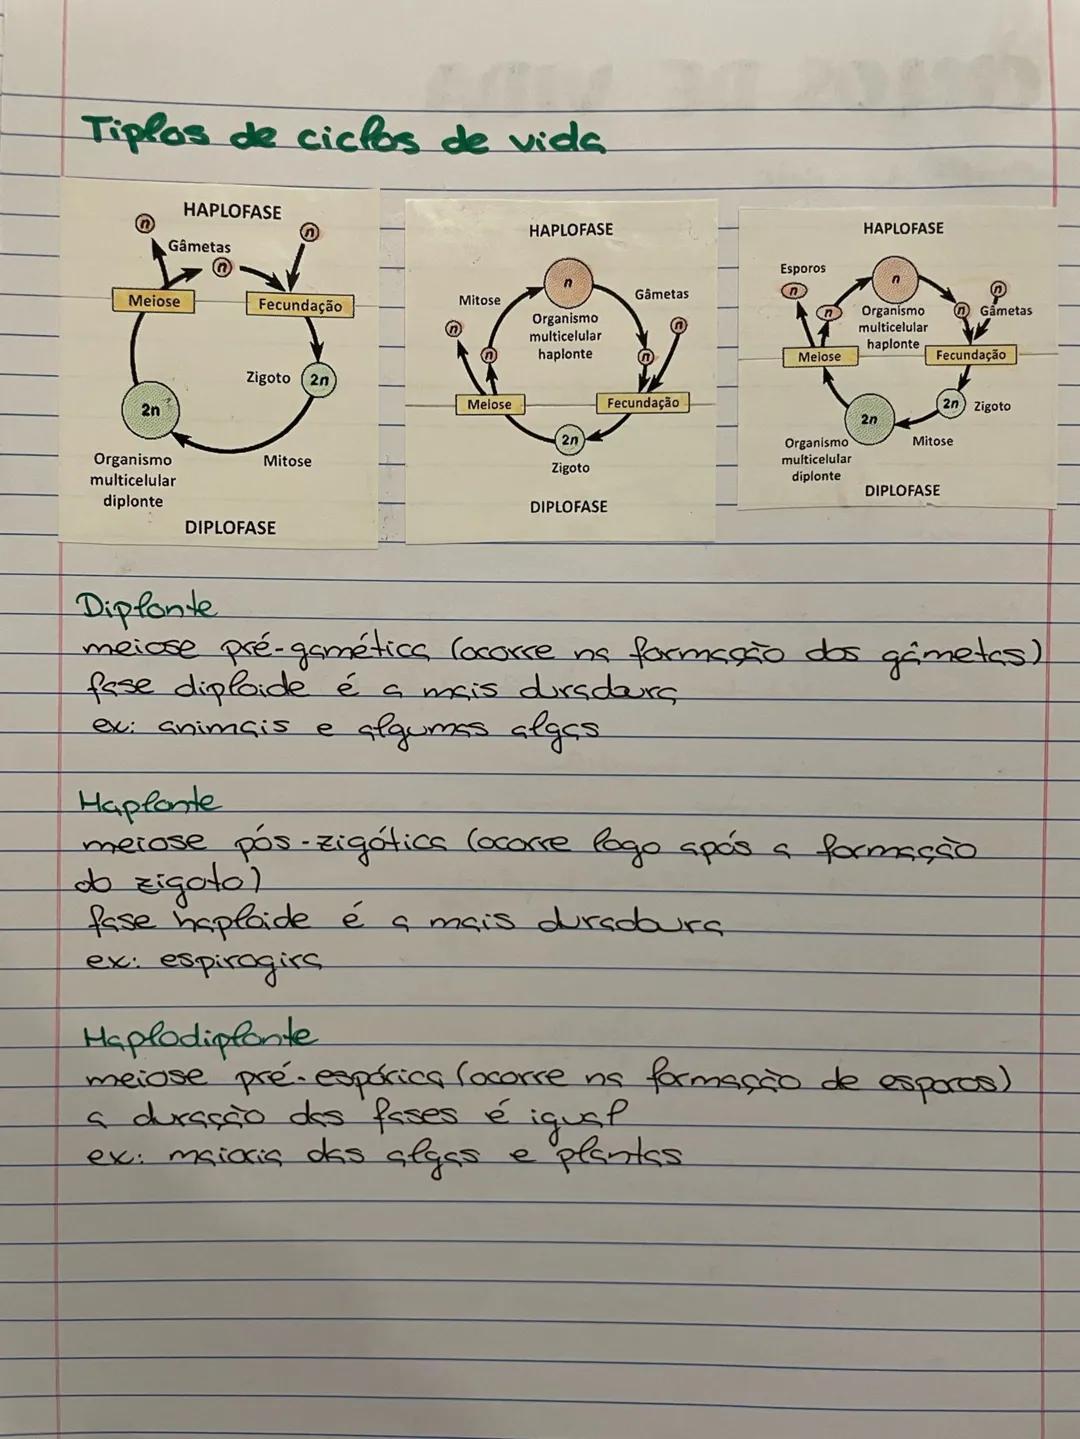 Tiplos de ciclos de vida
HAPLOFASE
n
n
Gâmetas
n
Meiose
Fecundação
Zigoto
2n
2n
Organismo
multicelular
diplonte
Mitose
DIPLOFASE
HAPLOFASE
n
Mitose
Gâmetas
Organismo
multicelular
haplonte
n
n
n
n
Meiose
Fecundação
2n
Zigoto
DIPLOFASE
HAPLOFASE
Esporos
n
n
n
n
n
Gâmetas
Organismo
multicelular
haplonte
Meiose
Fecundação
2n
Zigoto
2n
Mitose
Organismo
multicelular
diplonte
DIPLOFASE
Diplonte
meiose pré-gamética (ocorre na formação dos gâmetas)
fase diploide é a mais duradoura
ex: animais e algumas algas
Haplonte
meiose pós-zigótica (ocorre logo após a formação
do zigoto)
fase haploide é a mais duradoura
ex: espirogira
Haplodiplonte
meiose pré-espórica (ocorre na formação de esporos)
a duração das fases é igual
ex: maioria das algas e plantas